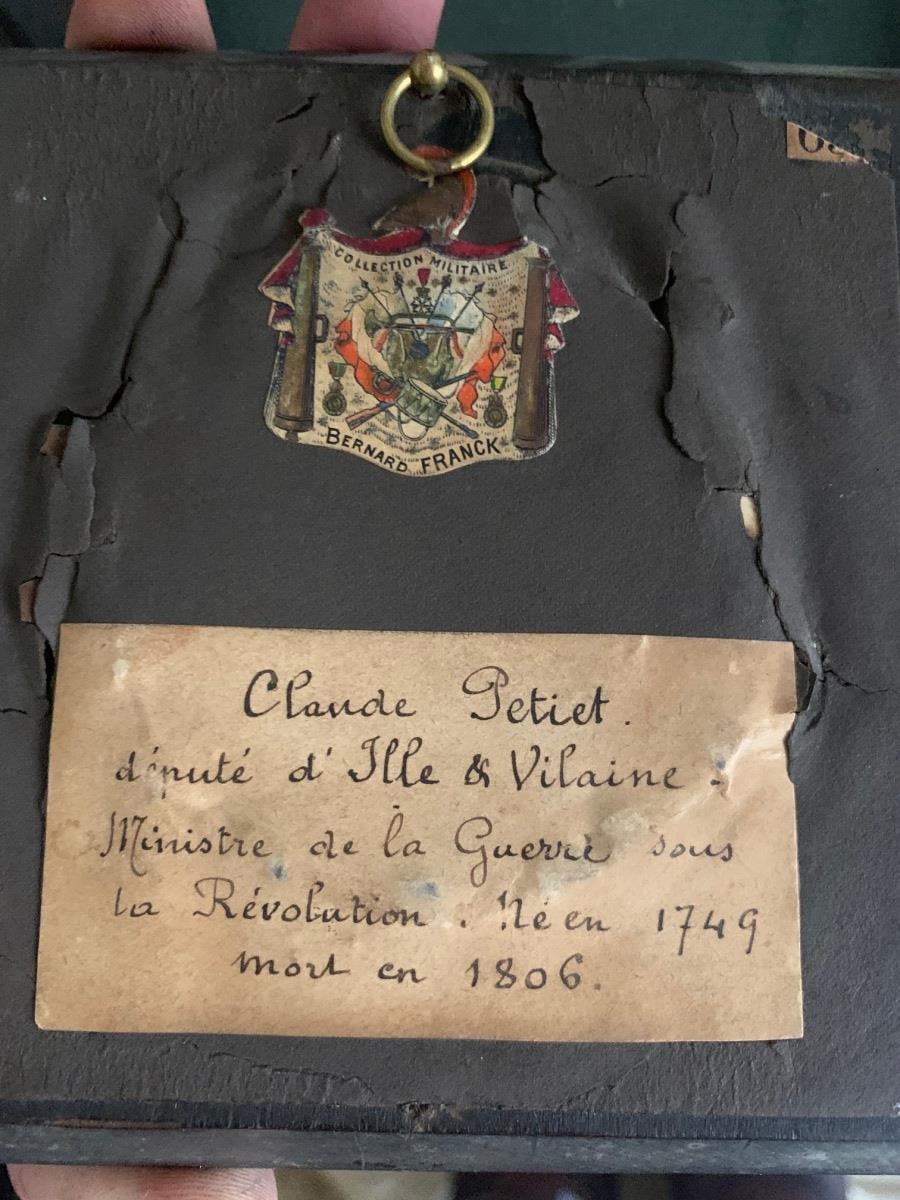 COLLECTION MILITAIRE
BERNARD FRANCK
Claude Petiet.
député d'Ille & Vilaine.
Ministre de la Guerre sous
la Révolution. Né en 1749
mort en 1806.